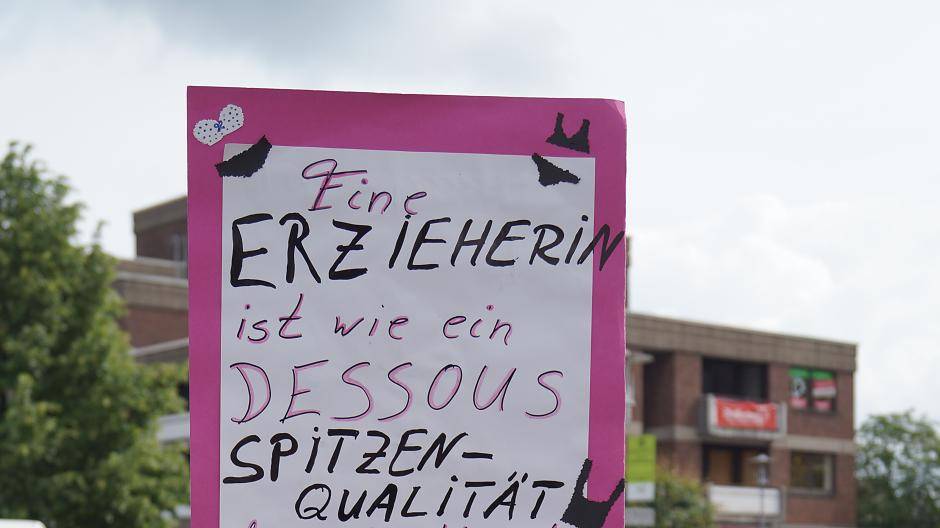 Eine
ERZIEHERIN
ist wie ein
DESSOUS
SPITZEN-
QUALITÄT